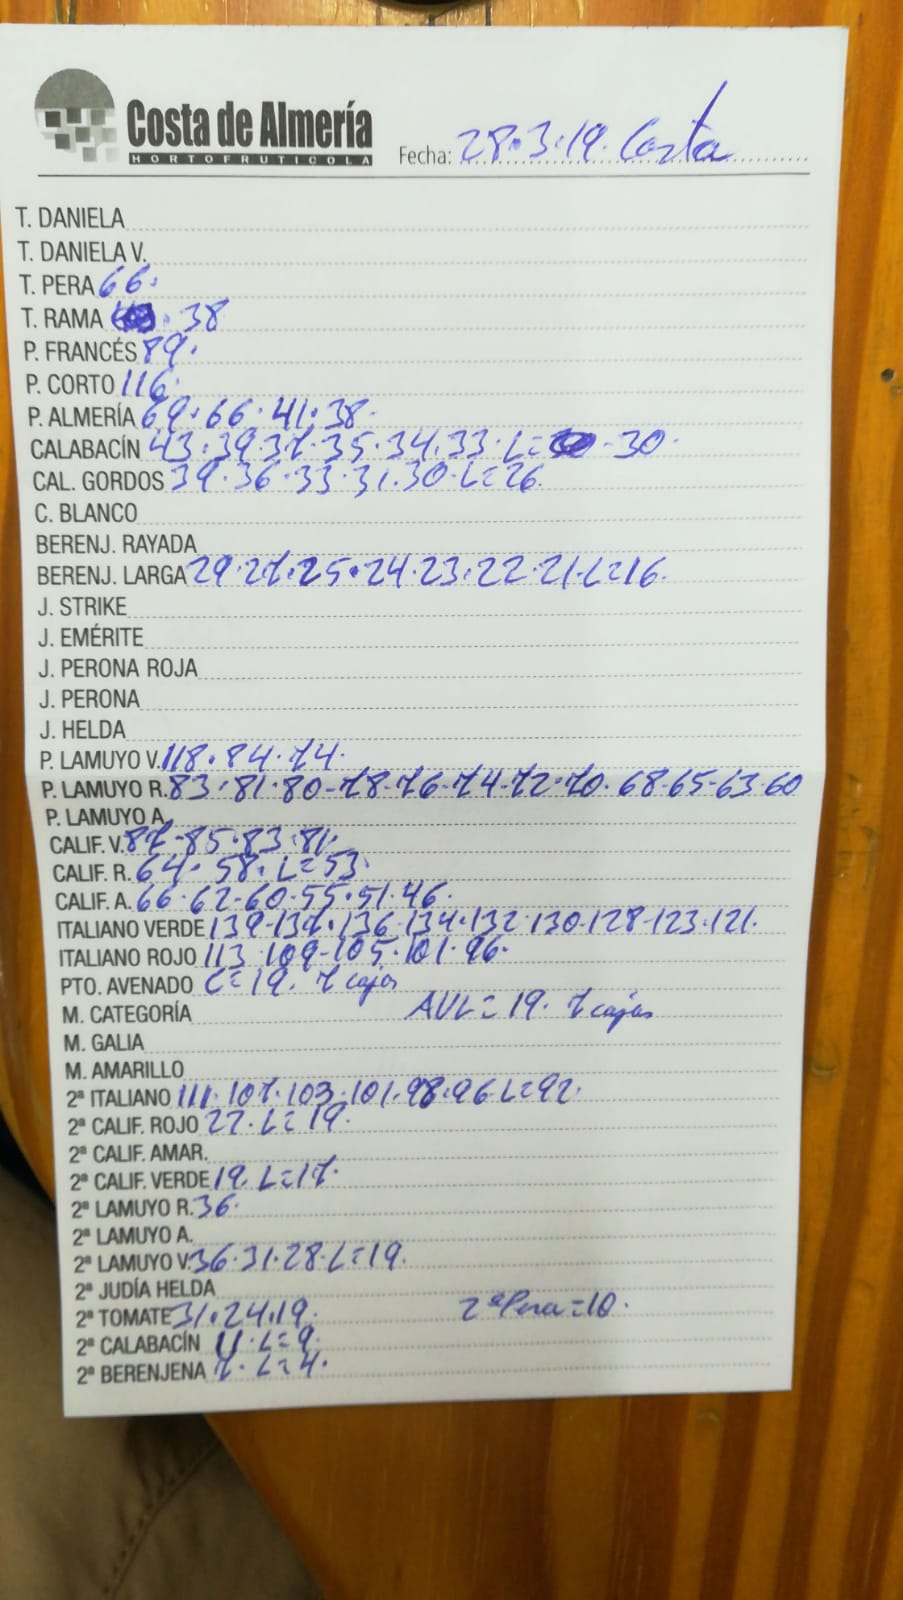 Costa de Almería
HORTOFRUTICOLA
Fecha: 28.3.19. Costa
T. DANIELA
T. DANIELA V.
T. PERA 66.
T. RAMA . 38
P. FRANCÉS 89.
P. CORTO 116.
P. ALMERÍA 69. 66. 41. 38.
CALABACÍN 43. 39. 37. 35. 34. 33. L= - 30.
CAL. GORDOS 39. 36. 33. 31. 30. L=26.
C. BLANCO
BERENJ. RAYADA
BERENJ. LARGA 29. 27. 25. 24. 23. 22. 21. L=16.
J. STRIKE
J. EMÉRITE
J. PERONA ROJA
J. PERONA
J. HELDA
P. LAMUYO V. 118. 84. 74.
P. LAMUYO R. 83. 81. 80-78-76-74-72-70. 68-65-63-60
P. LAMUYO A.
CALIF. V. 87-85. 83. 81.
CALIF. R. 64. 58. L=53.
CALIF. A. 66. 62-60-55. 51. 46.
ITALIANO VERDE 139-137. 136-134. 132. 130-128-123. 121.
ITALIANO ROJO 113. 109-105. 101. 96.
PTO. AVENADO L=19. 7 cajas
M. CATEGORÍA AVL=19. 7 cajas
M. GALIA
M. AMARILLO
2ª ITALIANO 111. 107. 103. 101. 98. 96. L=92.
2ª CALIF. ROJO 22. L=19.
2ª CALIF. AMAR.
2ª CALIF. VERDE 19. L=17.
2ª LAMUYO R. 36.
2ª LAMUYO A.
2ª LAMUYO V. 36. 31. 28. L=19.
2ª JUDÍA HELDA
2ª TOMATE 31. 24. 19. 2ª Pera=10.
2ª CALABACÍN 11. L=9.
2ª BERENJENA 7. L=4.